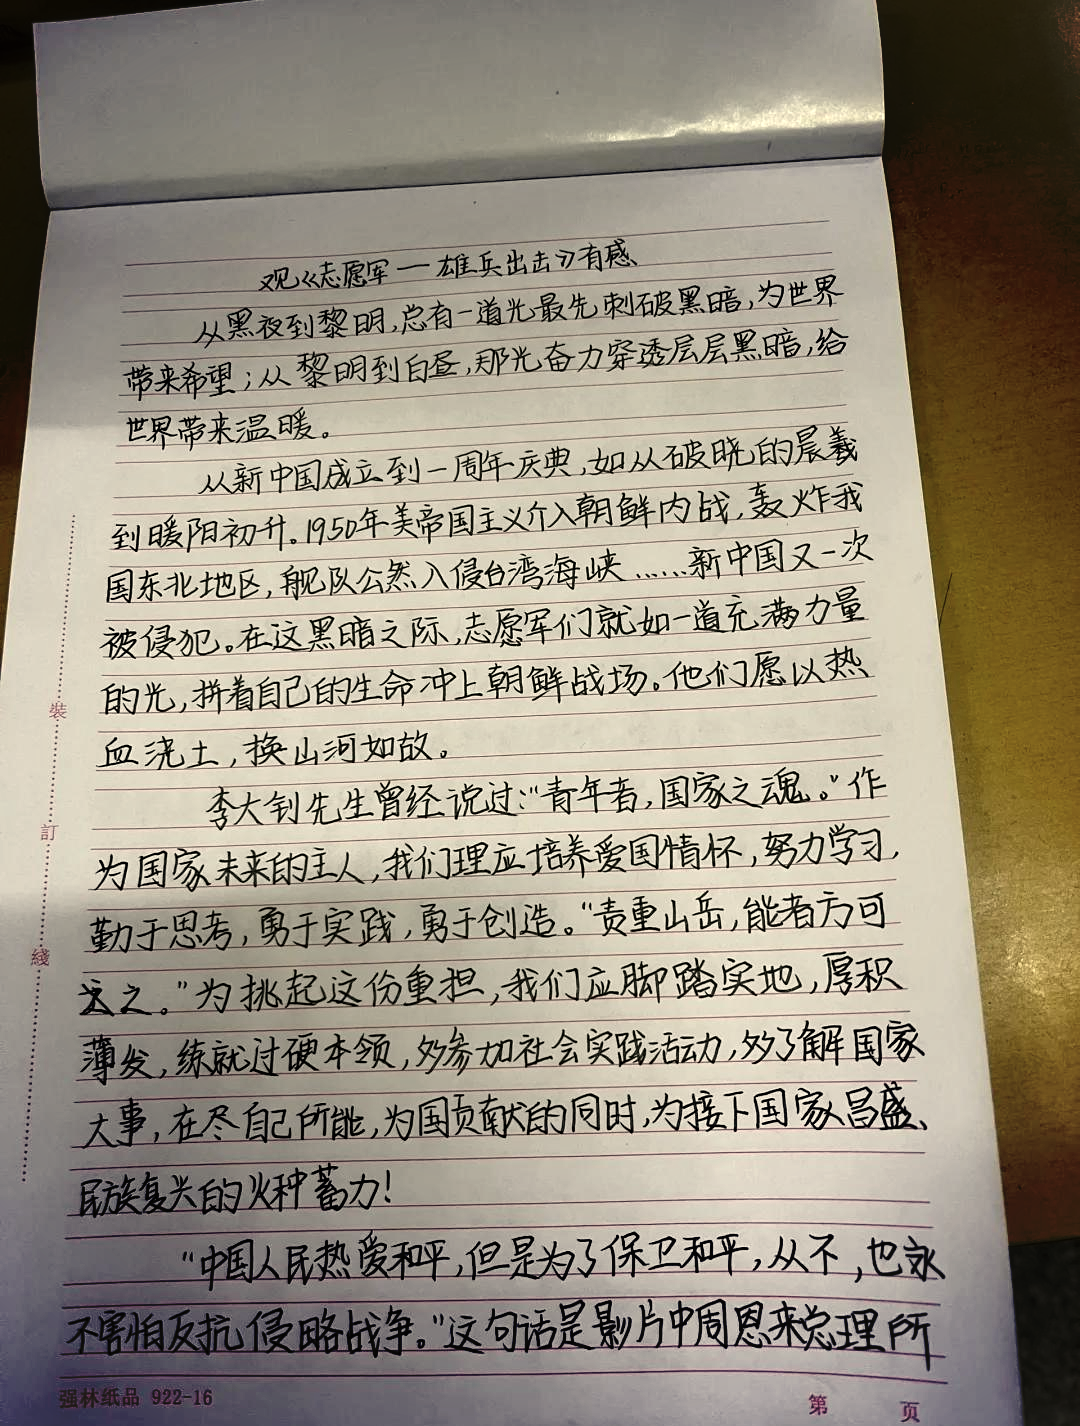 观《志愿军—雄兵出击》有感
从黑夜到黎明,总有一道光最先刺破黑暗,为世界
带来希望;从黎明到白昼,那光奋力穿透层层黑暗,给
世界带来温暖。
从新中国成立到一周年庆典,如从破晓的晨羲
到暖阳初升。1950年美帝国主义介入朝鲜内战,轰炸我
国东北地区,舰队公然入侵台湾海峡……新中国又一次
被侵犯。在这黑暗之际,志愿军们就如一道充满力量
的光,拼着自己的生命冲上朝鲜战场。他们愿以热
血浇土,换山河如故。
李大钊先生曾经说过:“青年者,国家之魂。”作
为国家未来的主人,我们理应培养爱国情怀,努力学习,
勤于思考,勇于实践,勇于创造。“责重山岳,能者方可
之。”为挑起这份重担,我们应脚踏实地,厚积
薄发,练就过硬本领,多参加社会实践活动,多了解国家
大事,在尽自己所能,为国贡献的同时,为接下国家昌盛、
民族复兴的火种蓄力!
“中国人民热爱和平,但是为了保卫和平,从不,也永
不害怕反抗侵略战争。”这句话是影片中周恩来总理所
裝
訂
綫
强林纸品 922-16
第 页